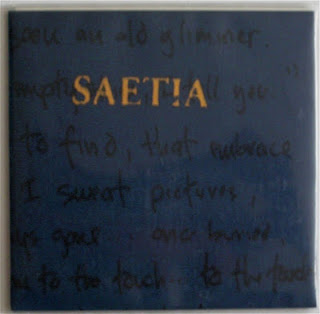 an old glimmer.
SAET!A
you
to find, that embrace
I sweat pictures,
gone . . once buried.
to the touch... to the touch